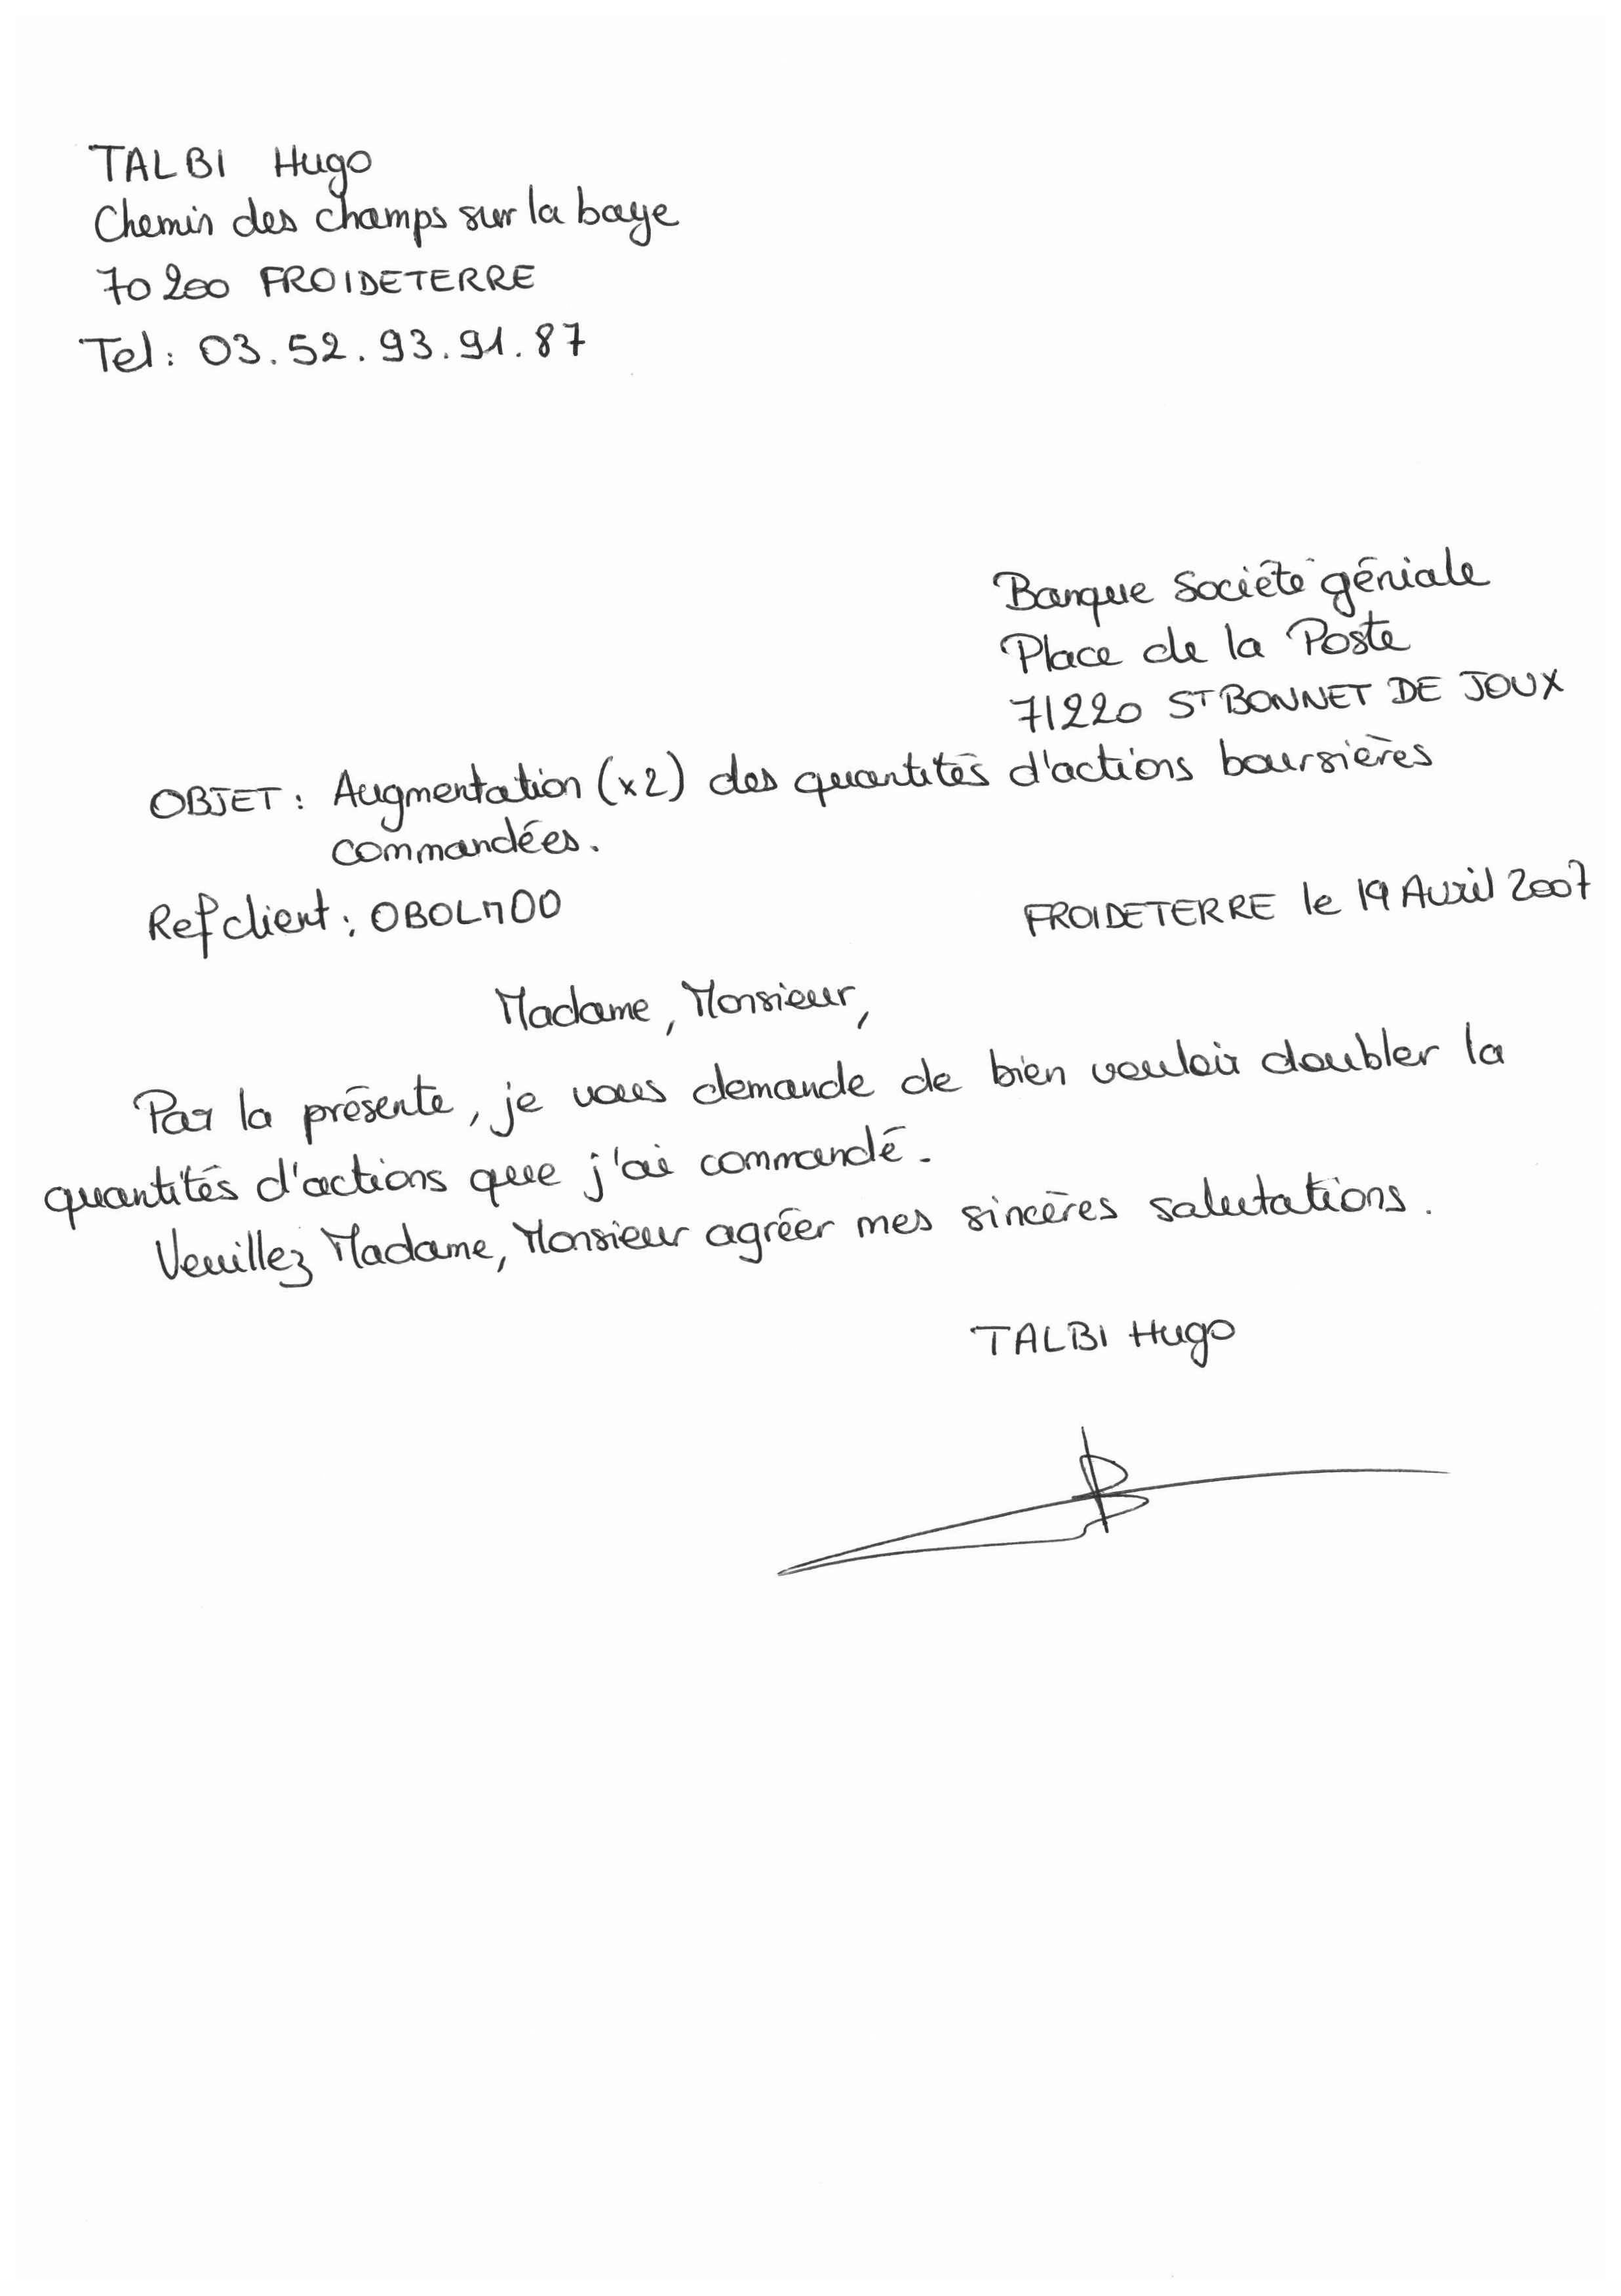 TALBI Hugo
Chemin des champs sur la baye
70200 FROIDETERRE
Tel : 03.52.93.91.87
Banque Société géniale
Place de la Poste
71220 ST BONNET DE JOUX
OBJET : Augmentation (x2) des quantités d'actions boursières
commandées.
Ref client : OBOLM00
FROIDETERRE le 19 Avril 2007
Madame, Monsieur,
Par la présente, je vous demande de bien vouloir doubler la
quantités d'actions que j'ai commandé.
Veuillez Madame, Monsieur agréer mes sincères salutations.
TALBI Hugo